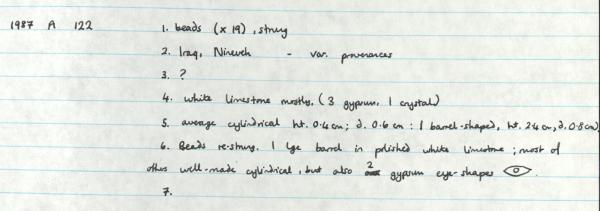 1987 A 122 1. beads (x 19), strung
2. Iraq, Nineveh - var. provenances
3. ?
4. white limestone mostly. (3 gypsum, 1 crystal)
5. average cylindrical ht. 0.4cm; d. 0.6 cm : 1 barrel-shaped, ht. 2.4 cm, d. 0.8cm)
6. Beads re-strung. 1 lge barrel in polished white limestone ; most of
others well-made cylindrical, but also 2 gypsum eye-shapes
7.